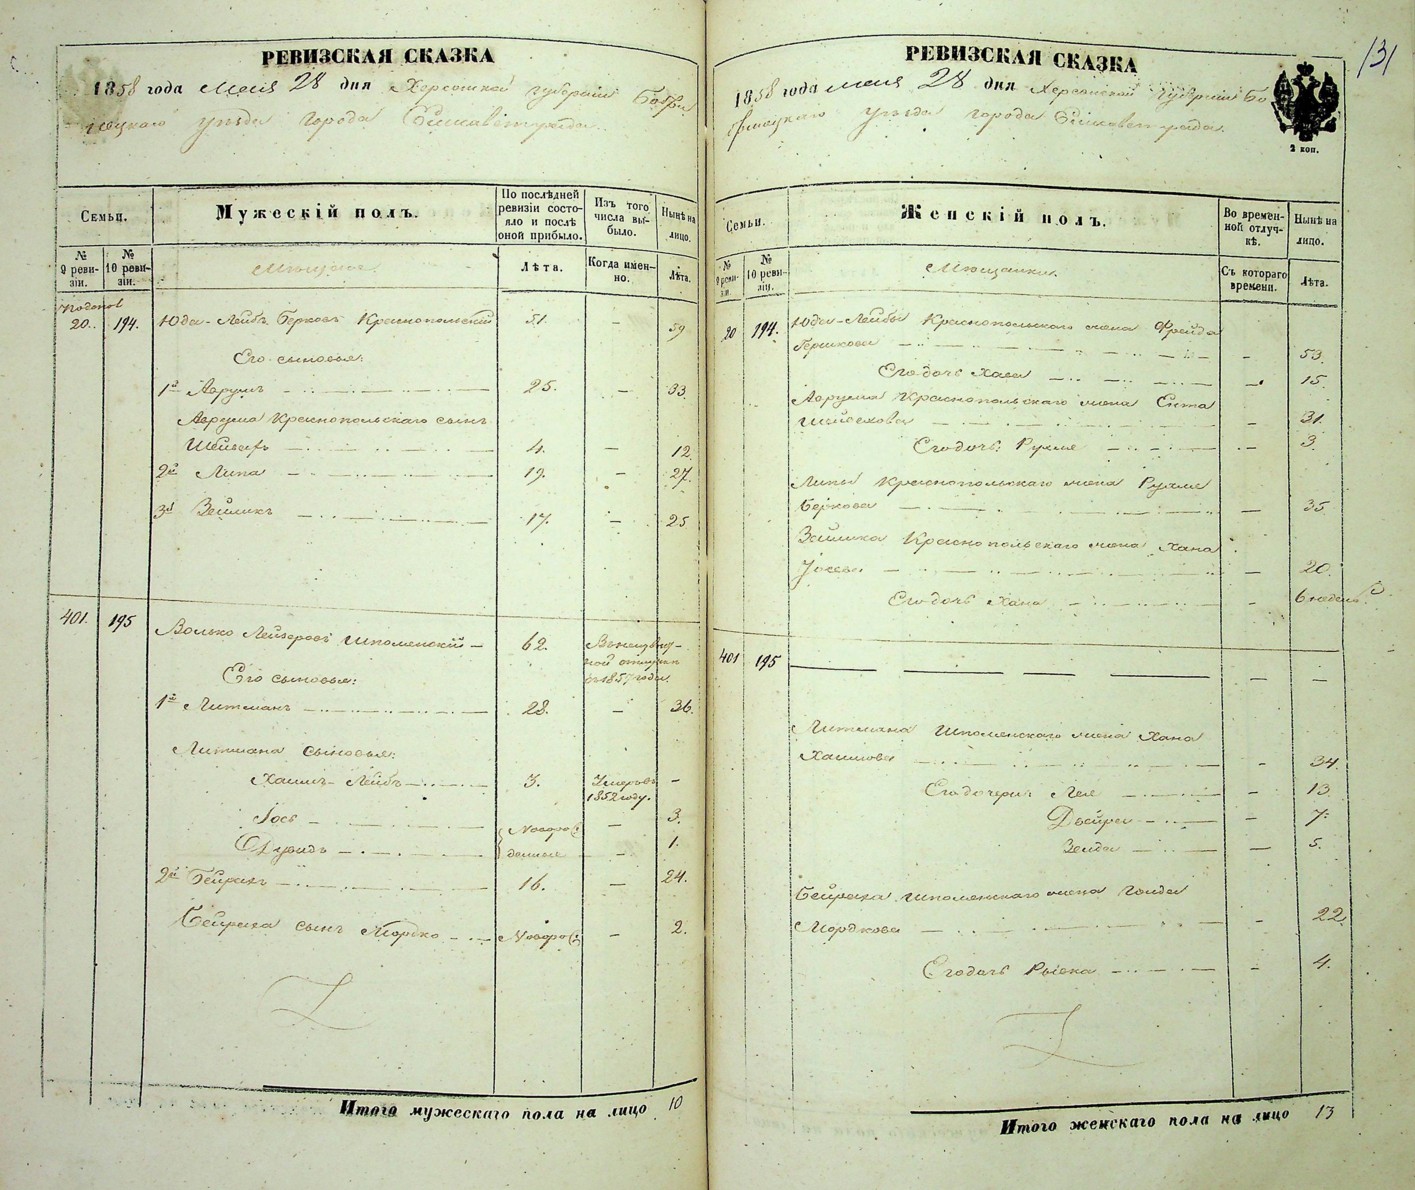 РЕВИЗСКАЯ СКАЗКА
1858 года Мая 28 дня Херсонской губернии Бобри
нецкаго уезда города Елисаветграда.
Семьи.
Мужескій полъ.
По послѣдней ревизіи состояло и послѣ оной прибыло.
Изъ того числа выбыло.
Нынѣ на лицо.
№ 9 ревизіи.
№ 10 ревизіи.
Мѣщане.
Лѣта.
Когда именно.
Лѣта.
20. 194. Юда-Лейбъ Берковъ Краснопольскій 51. - 59
Его сыновья:
1й Аврумъ 25. - 33.
Аврума Краснопольскаго сынъ
4. - 12.
2й Липа 19. - 27.
3й Зейликъ 17. - 25
401. 195 Волько Лейзеровъ Шполянскій - 62. В неизвѣст-
ной отлучкѣ
съ 1857 года.
Его сыновья:
1й Литманъ 28. - 36.
Литмана сыновья:
Хаимъ-Лейбъ 3. Умеръ въ -
1852 году.
Іось Новорож - 3.
Дувидъ денные - 1.
2й Бейрахъ 16. - 24.
Бейраха сынъ Мордко Новорож - 2.
Итого мужескаго пола на лицо 10
РЕВИЗСКАЯ СКАЗКА
131
1858 года мая 28 дня Херсонской губерніи Бо
бринецкаго уезда города Елисаветграда.
2 коп.
Семьи.
Женскій полъ.
Во временной отлучкѣ.
Нынѣ на лицо.
№ 9 ревизіи.
№ 10 ревизіи.
Мѣщанки.
Съ котораго времени.
Лѣта.
20 194. Юды-Лейбы Краснопольскаго жена Фрейда
Гершкова - 53.
Его дочь Хава - 15.
Аврума Краснопольскаго жена Ента
- 31.
Его дочь: Рухля - 3.
Липы Краснопольскаго жена Рухля
Беркова - 35
Зейлика Краснопольскаго жена Хана
Іосева - 20.
Его дочь Хана - 6 недель.
401 195 - -
Литмана Шполянскаго жена Хана
Хаимова - 34.
Его дочери: Лея - 13
Двейра - 7.
Зелда - 5.
Бейраха Шполянскаго жена Голда
Мордкова - 22.
Его дочь Рывка - 4.
Итого женскаго пола на лицо 13